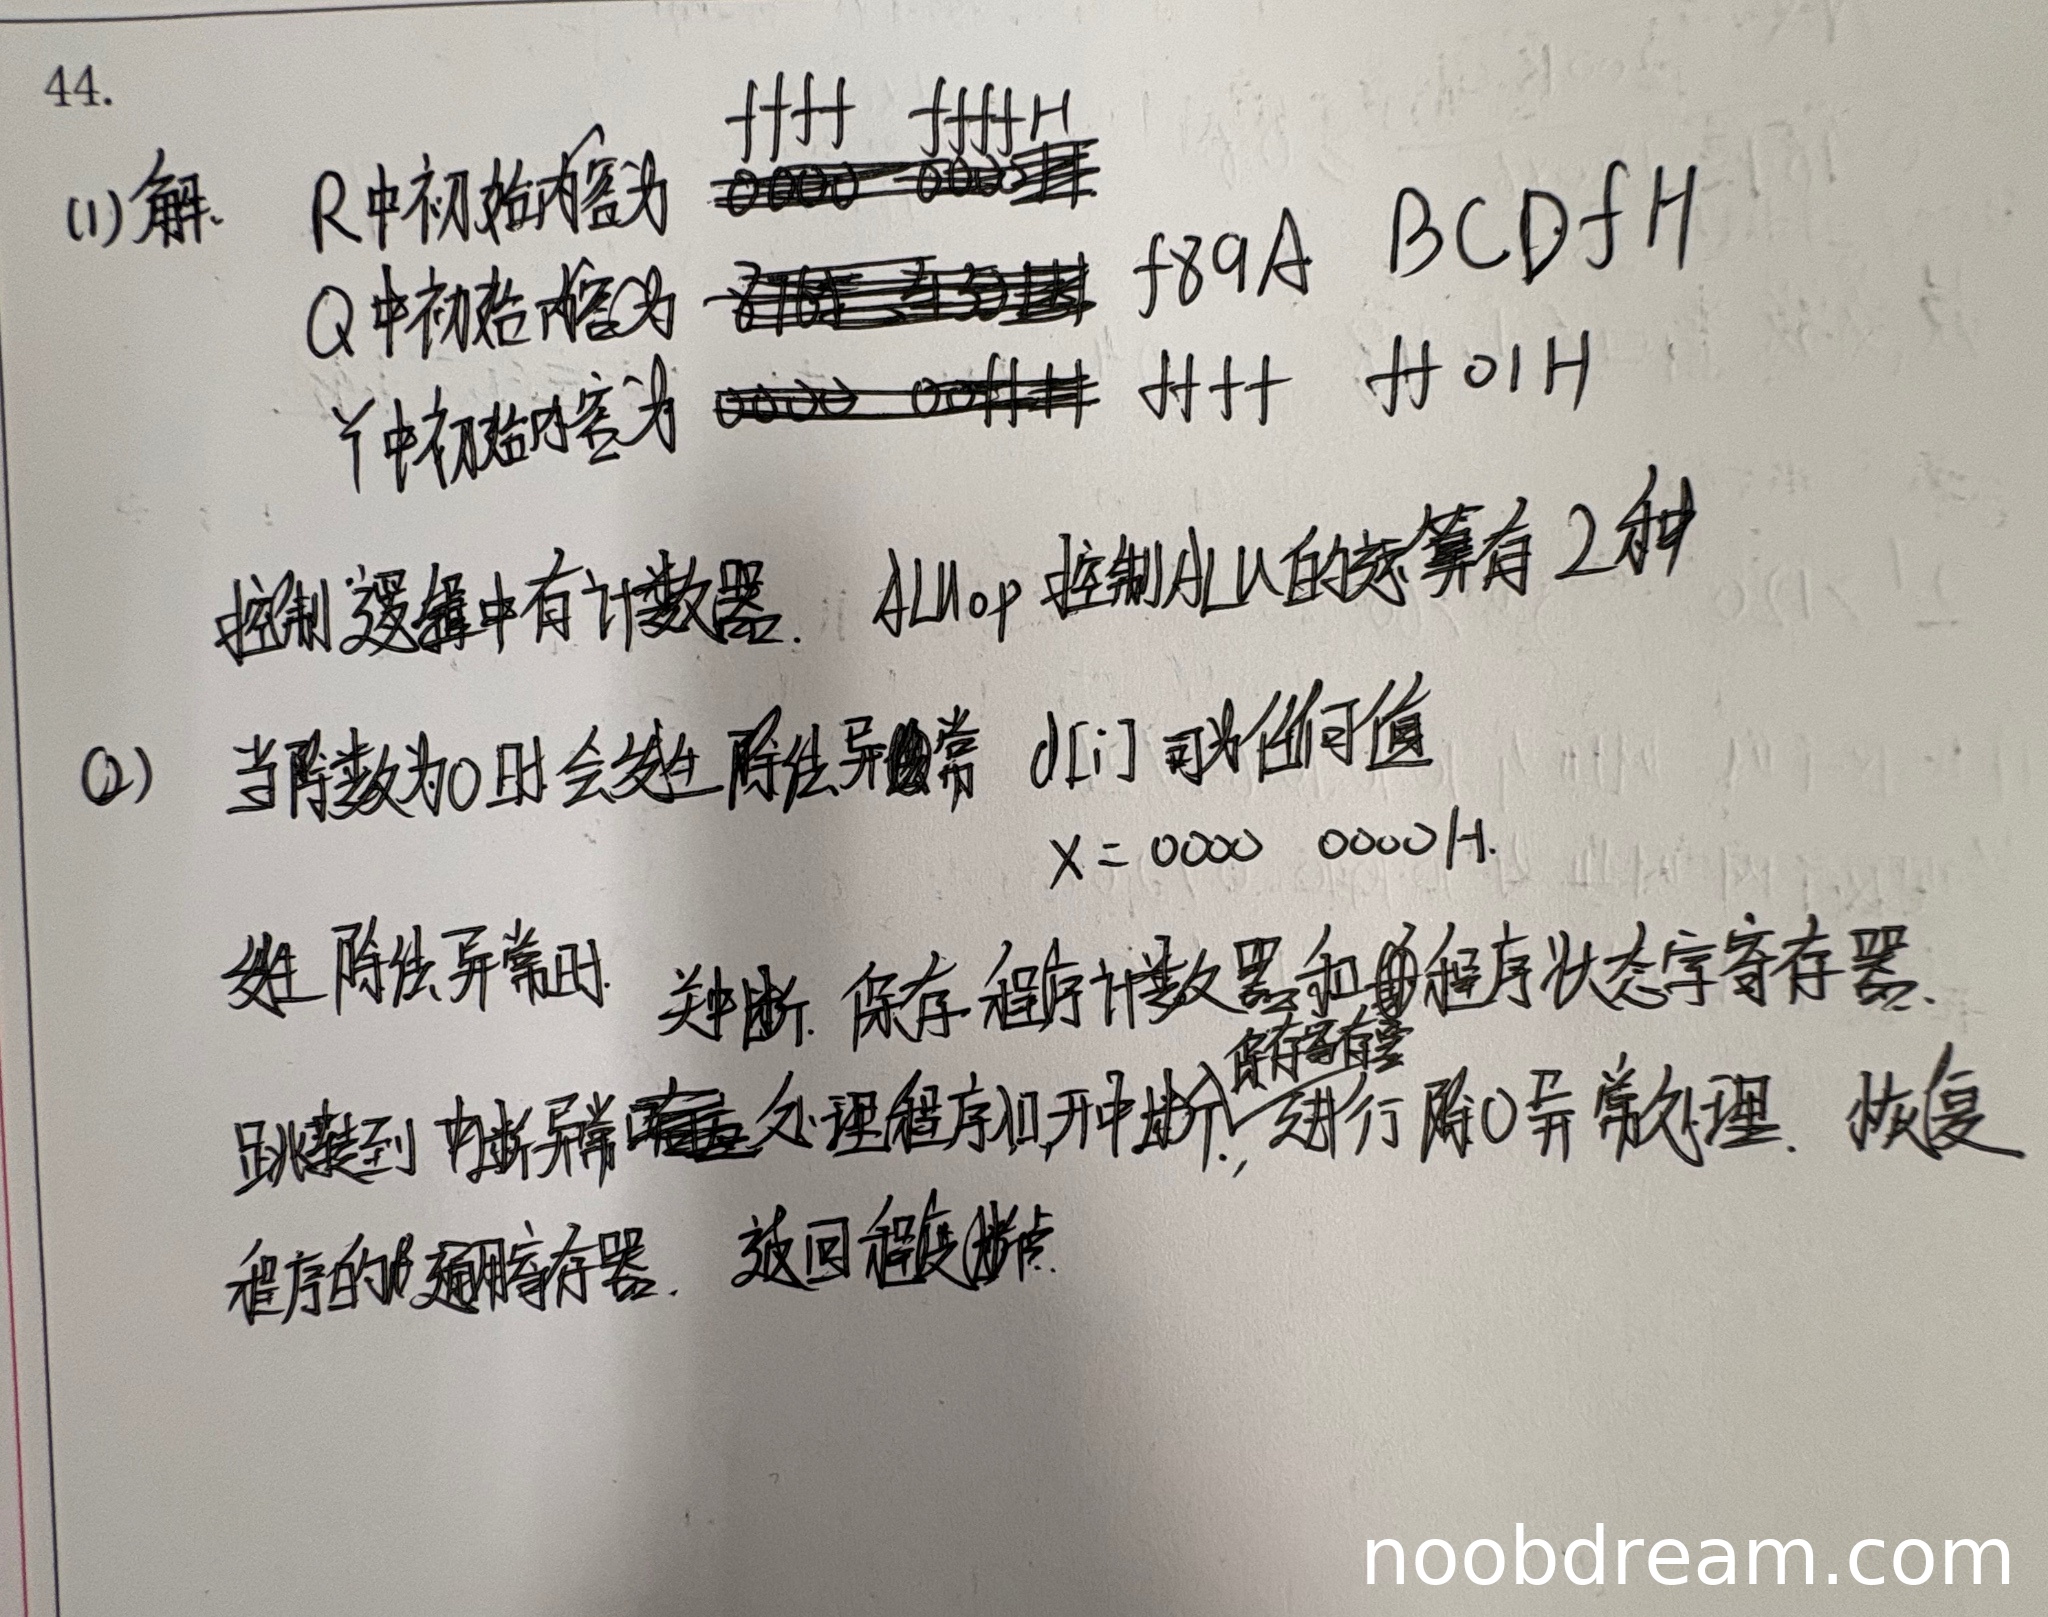 44.
(1)解. R中初始内容为 ffff ffffH
Q中初始内容为 f89A BCDfH
Y中初始内容为 ffff ff01H
控制逻辑中有计数器. ALUop 控制ALU的运算有2种
(2) 当除数为0时会发生除法异常 d[i]可为任何值
x = 0000 0000H.
发生除法异常时. 关中断. 保存程序计数器和程序状态字寄存器.
保存寄存器
跳转到中断异常处理程序和,开中断., 进行除0异常处理. 恢复
程序的通用寄存器. 返回程序断点.
noobdream.com